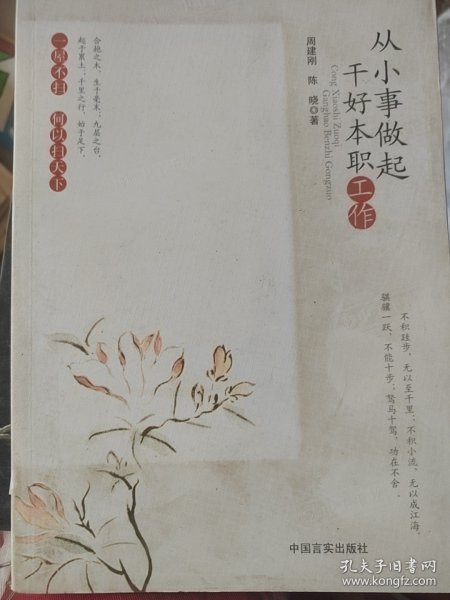 从小事做起
干好本职工作
Cong Xiaoshi Zuoqi
Ganghao Benzhi Gongzuo
周建刚 陈晓 著
合抱之木,生于毫末;九层之台,
起于累土;千里之行,始于足下。
一屋不扫 何以扫天下
不积跬步,无以至千里;不积小流,无以成江海。
骐骥一跃,不能十步;驽马十驾,功在不舍。
中国言实出版社
孔夫子旧书网
www.kongfz.com